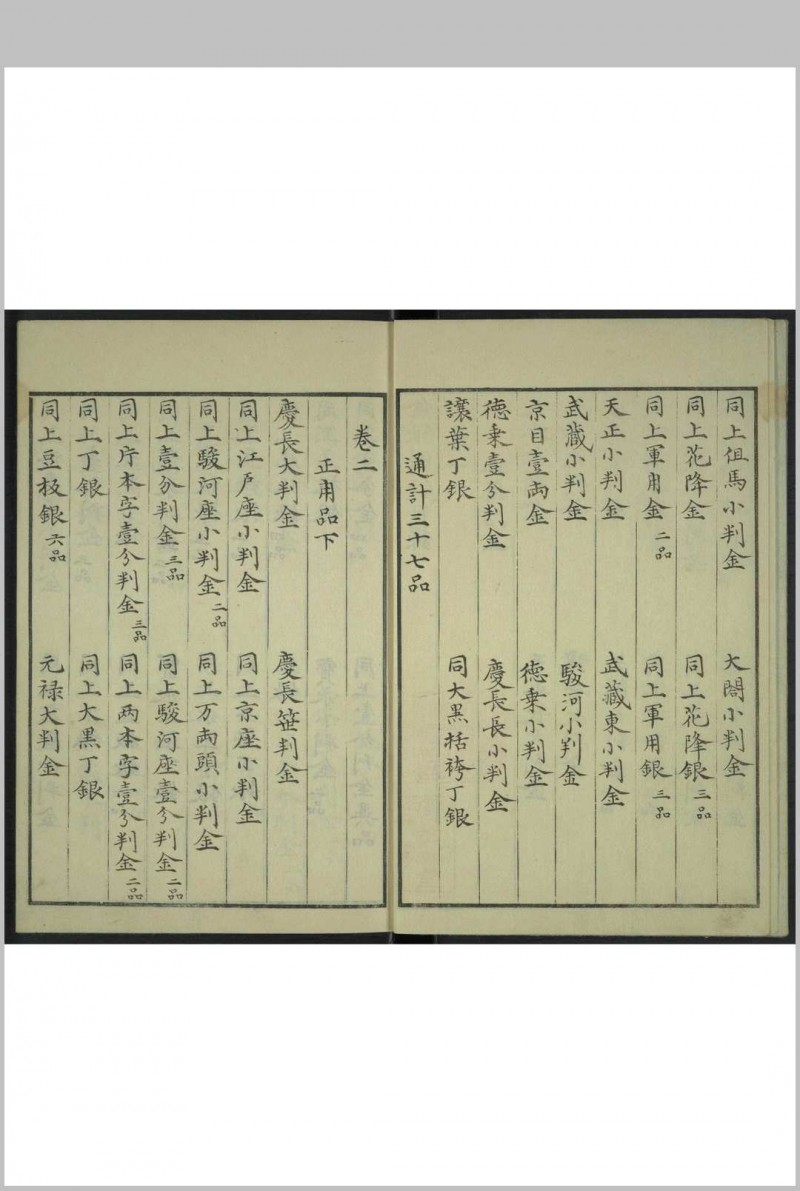 同上但馬小判金　大閤小判金
同上花降金　同上花降銀三品
同上軍用金二品　同上軍用銀三品
天正小判金　武藏東小判金
武藏小判金　駿河小判金
京目壹両金　徳乗小判金
徳乗壹分判金　慶長長小判金
譲葉丁銀　同大黒括袴丁銀
通計三十七品
巻二
正用品下
慶長大判金　慶長笹判金
同上江戸座小判金　同上京座小判金
同上駿河座小判金二品　同上万両頭小判金
同上壹分判金三品　同上駿河座壹分判金二品
同上片本字壹分判金三品　同上両本字壹分判金二品
同上丁銀　同上大黒丁銀
同上豆板銀六品　元禄大判金